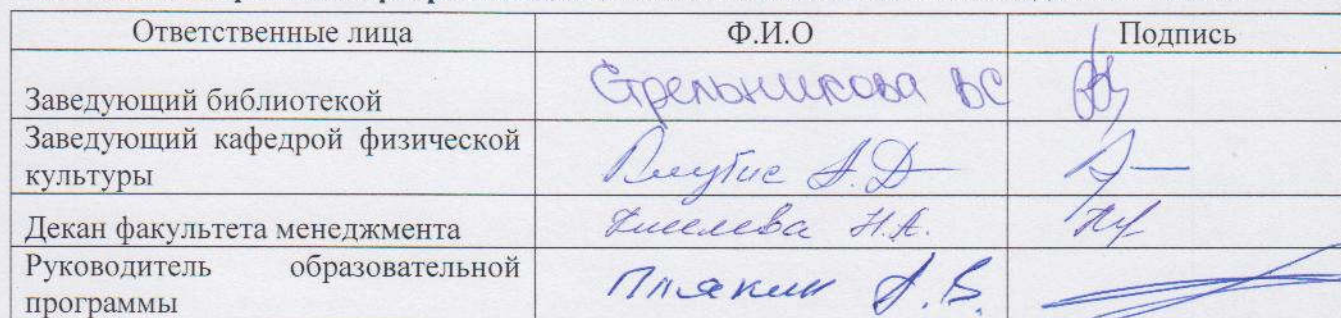 Ответственные лица Ф.И.О Подпись
Заведующий библиотекой Стрельникова ВС
Заведующий кафедрой физической
культуры А.Д
Декан факультета менеджмента Н.А.
Руководитель образовательной
программы Плякин А.В.